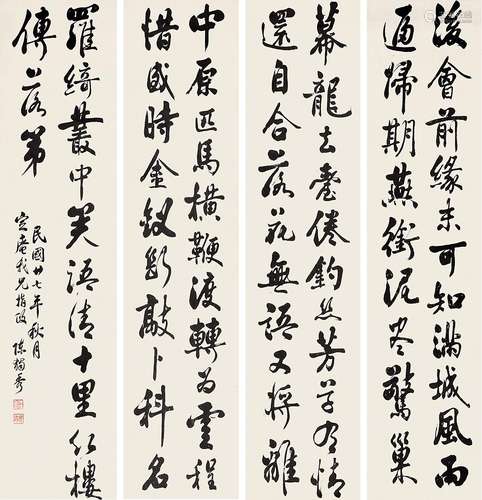 後會前緣未可知滿城風雨
逼歸期燕銜泥尽驚巢
幕龍去臺倦釣絲芳草有情
還自合落花無語又將離
中原匹馬橫鞭渡轉為雲程
惜盛時金釵断敲卜科名
羅綺叢中笑語清十里紅樓
傳落第
民國廿七年秋月
定庵我兄指政 陈獨秀